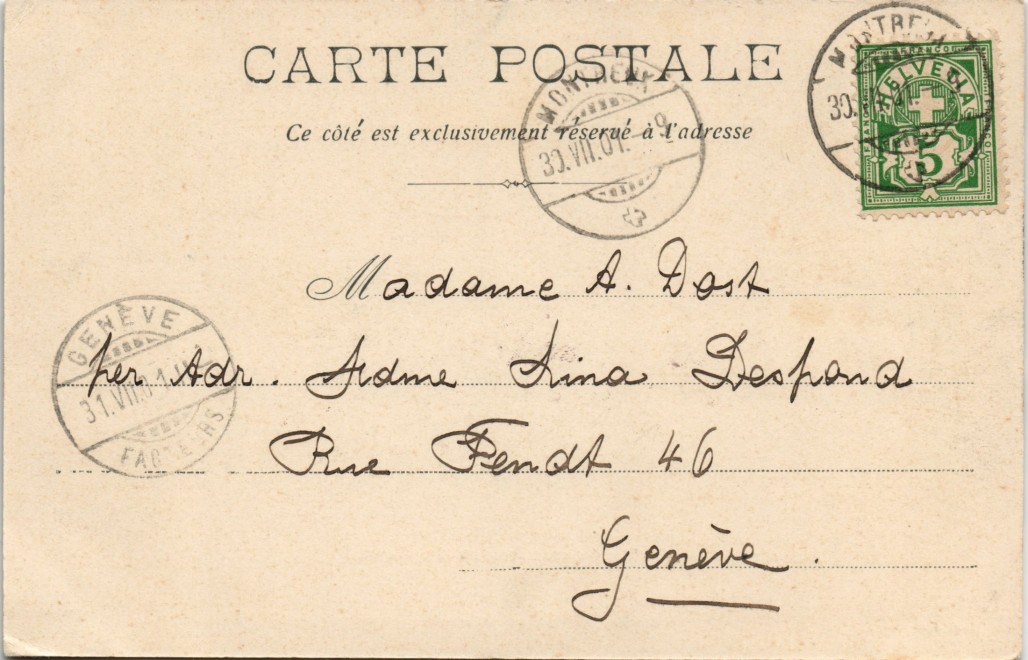 CARTE POSTALE
Ce côté est exclusivement réservé à l'adresse
MONTREUX
30.VII.01
9
MONTREUX
30.
HELVETIA
FRANCO
5
Madame A. Dost
GENÈVE
31.VII.01
FACTEURS
per Adr. Mdme Lina Despond
Rue Fendt 46
Genève.